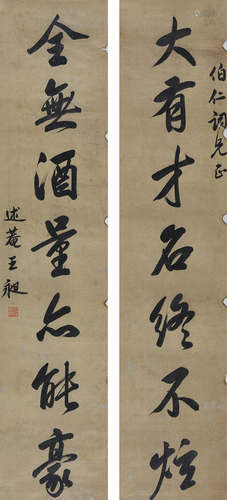 伯仁詞兄正
大有才名終不炫
全無酒量亦能豪
述菴王昶